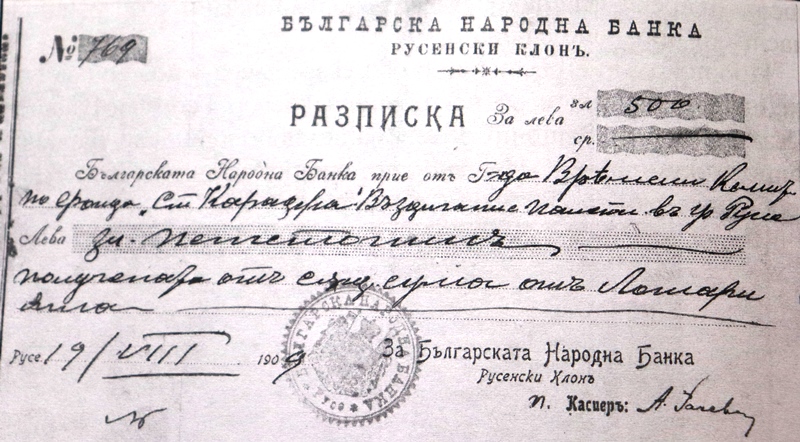 БЪЛГАРСКА НАРОДНА БАНКА
РУСЕНСКИ КЛОНЪ.
№ 769
РАЗПИСКА За лева зл. 500
ср.
Българската Народна Банка прие отъ Г-да Врѣмени Комит.
по фонда „Ст. Караджа" Въздигание паметн. въ гр. Русе
Лева зл. петстотинъ
получената отъ сума отъ Лотари
ята
Русе 19/VIII 1909
За Българската Народна Банка
Русенски Клонъ
п. Касиеръ: А.
БЪЛГАРСКА НАРОДНА БАНКА
* Русе *